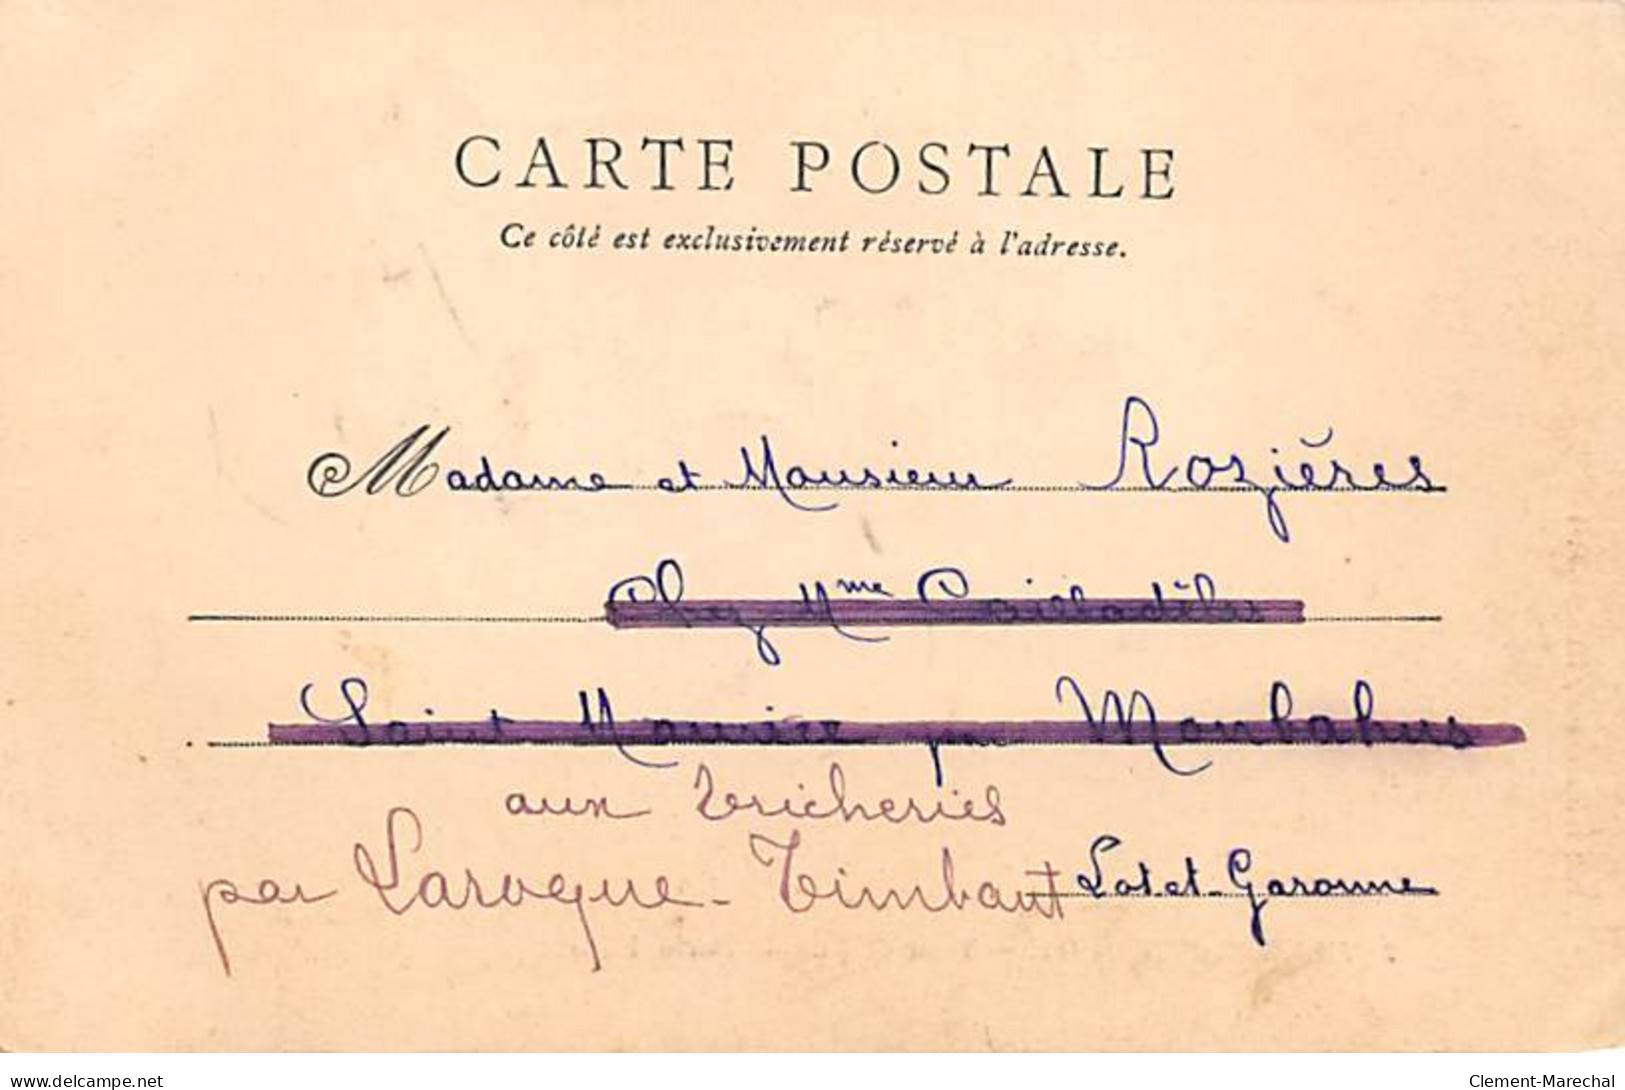 CARTE POSTALE
Ce côté est exclusivement réservé à l'adresse.
Madame et Monsieur Rozières
Chez Mme
Saint Maurice par Monbahus
aux tricheries
par Laroque-Timbaut Lot et-Garonne
www.delcampe.net
Clement-Marechal